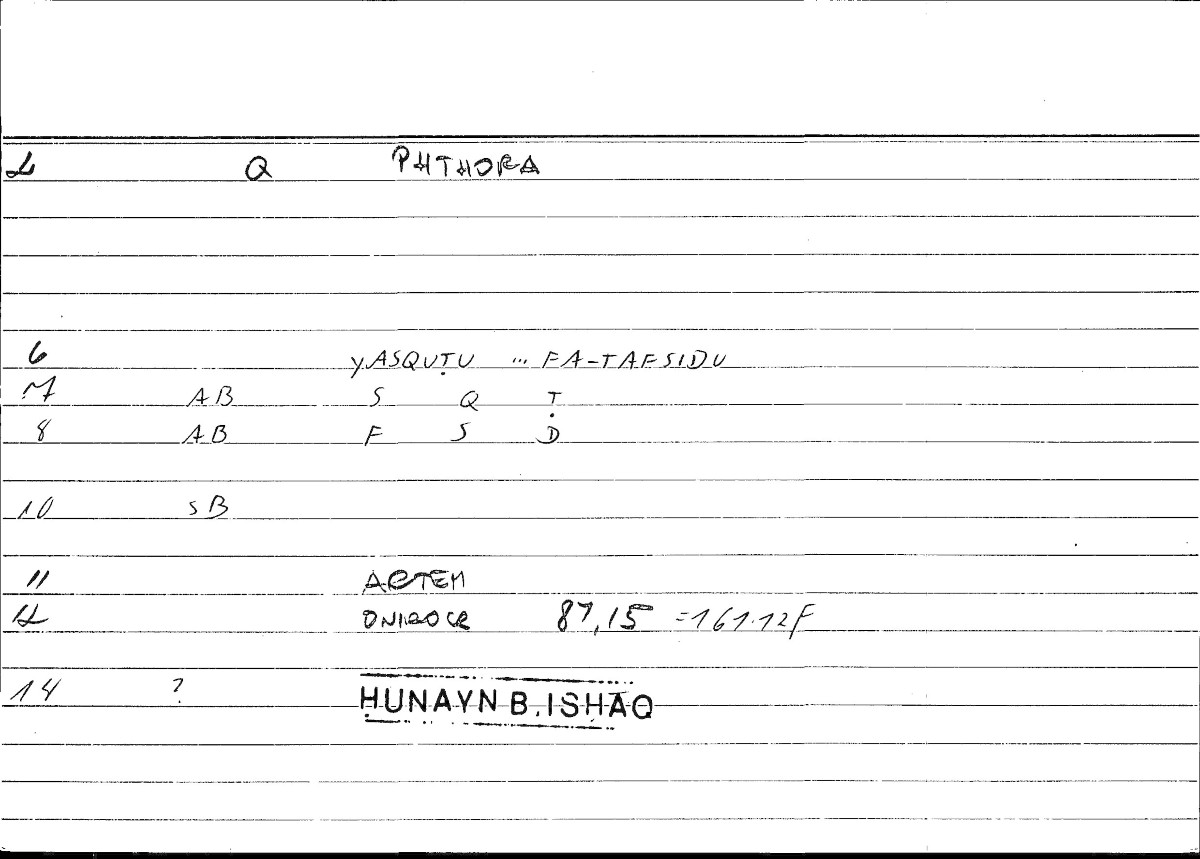 2 Q PHTHORA
6 YASQUṬU ... FA-TAFSIDU
7 AB S Q Ṭ
8 AB F S D
10 SB
11 ARTEM
12 ONIROCR 87,15 =161.12F
14 ? ḤUNAYN B. ISḤĀQ